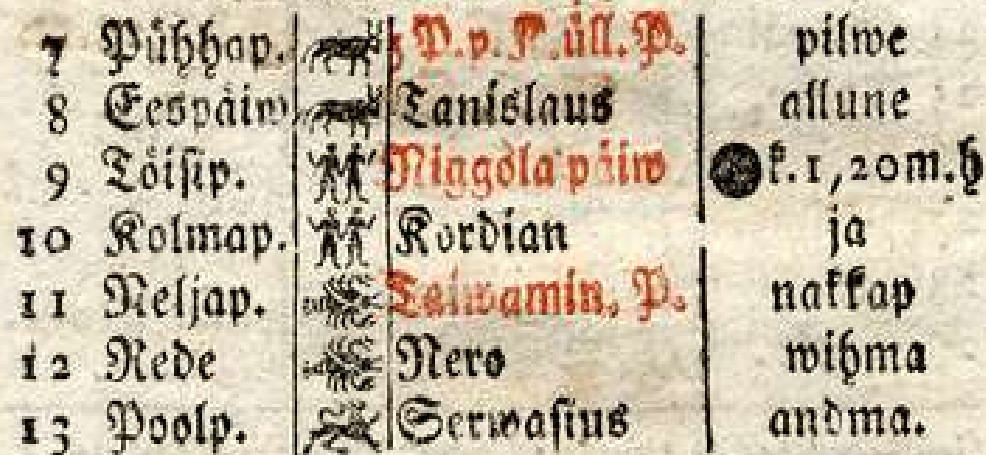 7 Pühhap. 3 P. p. P. üll. P. pilwe
8 Eespäiw Tanislaus allune
9 Töisip. Niggola päiw k. 1, 20 m. h
10 Kolmap. Kordian ja
11 Neljap. Taiwamin. P. nakkap
12 Rede Nero wihma
13 Poolp. Serwasius andma.